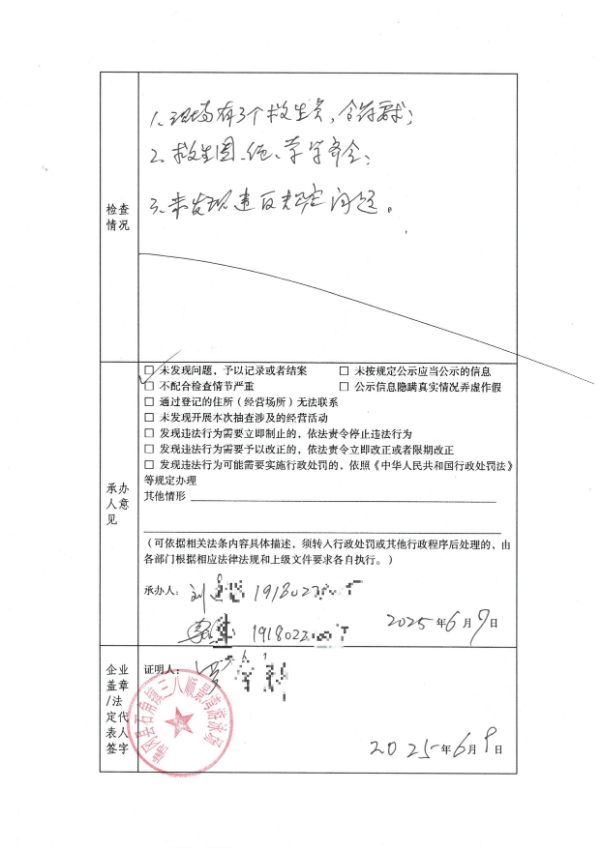 检查
情况
1、现场有3个救生员，合符要求；
2、救生圈、绳、竿等齐全；
3、未发现违反规定问题。
承办
人意
见
☑ 未发现问题，予以记录或者结案 □ 未按规定公示应当公示的信息
□ 不配合检查情节严重 □ 公示信息隐瞒真实情况弄虚作假
□ 通过登记的住所（经营场所）无法联系
□ 未发现开展本次抽查涉及的经营活动
□ 发现违法行为需要立即制止的，依法责令停止违法行为
□ 发现违法行为需要予以改正的，依法责令立即改正或者限期改正
□ 发现违法行为可能需要实施行政处罚的，依照《中华人民共和国行政处罚法》
等规定办理
其他情形
（可依据相关法条内容具体描述，须转入行政处罚或其他行政程序后处理的，由
各部门根据相应法律法规和上级文件要求各自执行。）
承办人：刘 1918023
1918023
2025年6月9日
企业
盖章
/法
定代
表人
签字
证明人：罗
县石角镇三八顺景湾游泳
2025年6月9日